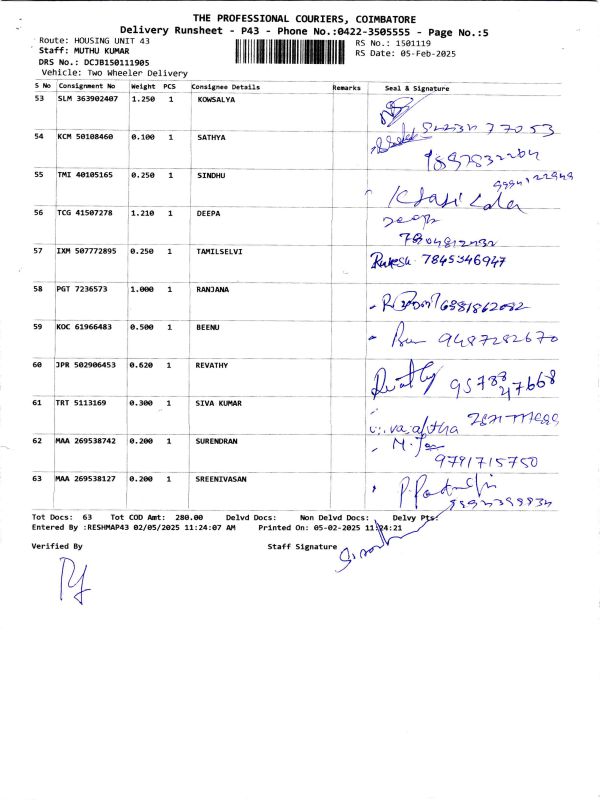 THE PROFESSIONAL COURIERS, COIMBATORE
Delivery Runsheet - P43 - Phone No.:0422-3505555 - Page No.:5
Route: HOUSING UNIT 43
RS No.: 1501119
Staff: MUTHU KUMAR
RS Date: 05-Feb-2025
DRS No.: DCJB150111905
Vehicle: Two Wheeler Delivery
S No Consignment No Weight PCS Consignee Details Remarks Seal & Signature
53 SLM 363902407 1.250 1 KOWSALYA
54 KCM 50108460 0.100 1 SATHYA
55 TMI 40105165 0.250 1 SINDHU
56 TCG 41507278 1.210 1 DEEPA
57 IXM 507772895 0.250 1 TAMILSELVI
Rakesh 7845346947
58 PGT 7236573 1.000 1 RANJANA
59 KOC 61966483 0.500 1 BEENU
9487282670
60 JPR 502906453 0.620 1 REVATHY
Revathy
61 TRT 5113169 0.300 1 SIVA KUMAR
62 MAA 269538742 0.200 1 SURENDRAN
9791715750
63 MAA 269538127 0.200 1 SREENIVASAN
Tot Docs: 63 Tot COD Amt: 280.00 Delvd Docs: Non Delvd Docs: Delvy Pts:
Entered By :RESHMAP43 02/05/2025 11:24:07 AM Printed On: 05-02-2025 11:24:21
Verified By Staff Signature